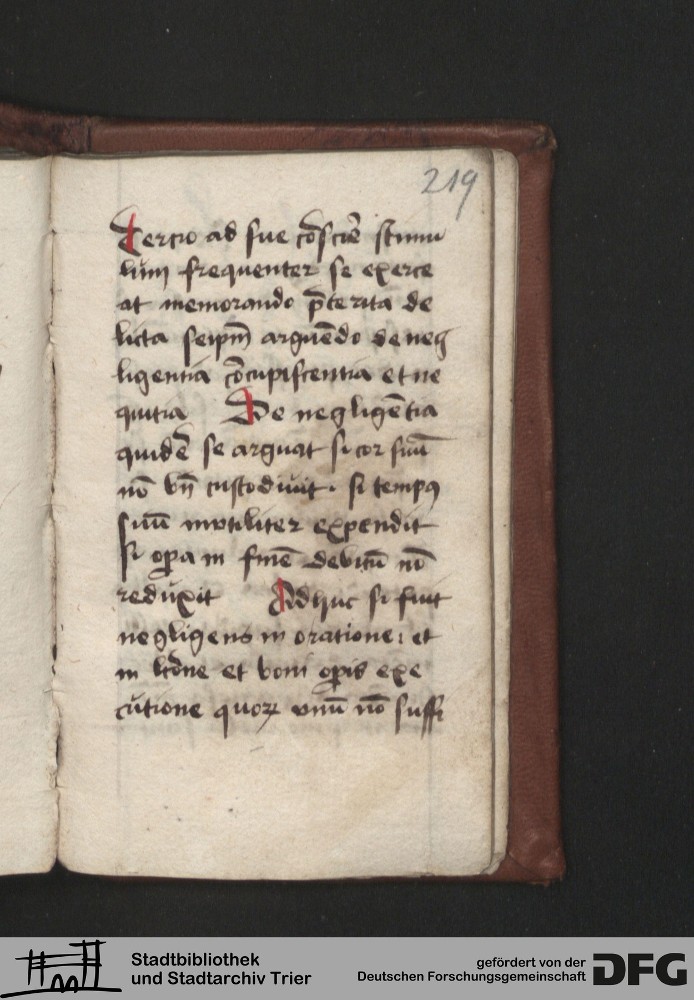 219
Tercio ad sue cōsciē stimu
lum frequenter se exerce
at memorando p̄terita de
licta seipm̄ arguēdo de neg
ligentia cōcupiscentia et ne
quitia De negligētia
quidē se arguat si cor suū
nō bn̄ custodiuit. si tempꝯ
suū inutiliter expendit
si oꝑa in finē debitū nō
reduxit Adhuc si fuit
negligens in oratione: et
in lc̄one et boni oꝑis exe
cutione quoꝝ vnū nō suffi
Stadtbibliothek
und Stadtarchiv Trier
gefördert von der
Deutschen Forschungsgemeinschaft
DFG